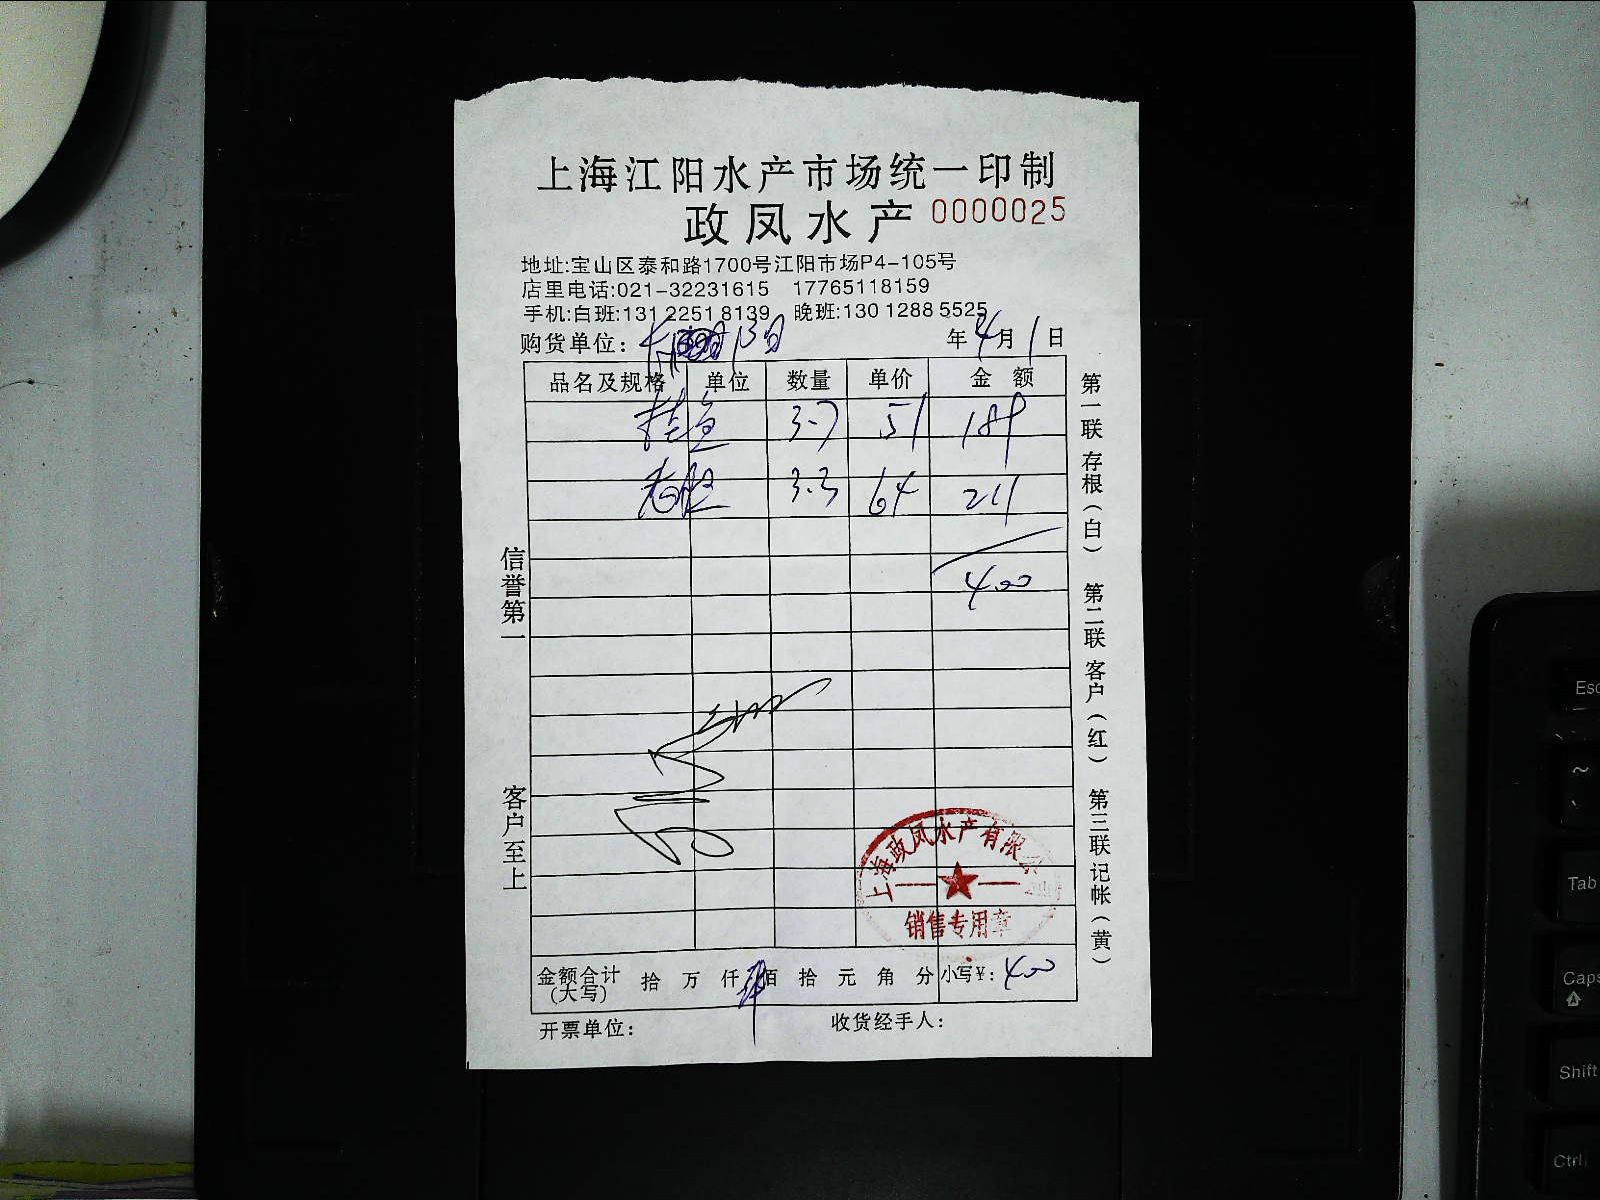 上海江阳水产市场统一印制
政凤水产 0000025
地址:宝山区泰和路1700号江阳市场P4-105号
店里电话:021-32231615 17765118159
手机:白班:131 2251 8139 晚班:130 1288 5525
购货单位: 年4月1日
品名及规格 单位 数量 单价 金额
桂鱼 3.7 51 189
3.3 64 211
400
信誉第一
客户至上
第一联存根(白) 第二联客户(红) 第三联记帐(黄)
上海政凤水产有限公司
销售专用章
金额合计(大写) 拾 万 仟 佰 拾 元 角 分 小写¥: 400
开票单位: 收货经手人:
Esc
~
Tab
Caps
Shift
Ctrl